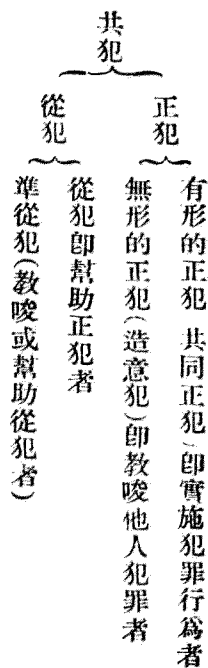 共犯
正犯
有形的正犯(共同正犯)即實施犯罪行爲者
無形的正犯(造意犯)即教唆他人犯罪者
從犯
從犯即幫助正犯者
準從犯(教唆或幫助從犯者)